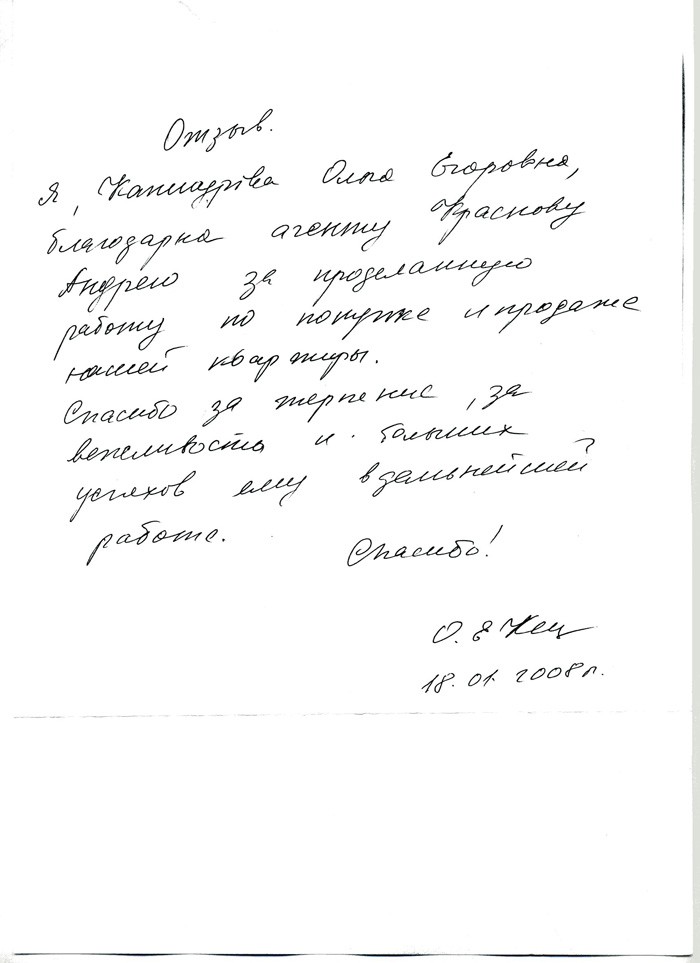 Отзыв.
Я, Ольга Егоровна,
благодарна агенту Краснову
Андрею за проделанную
работу по покупке и продаже
нашей квартиры.
Спасибо за терпение, за
вежливость и больших
успехов ему в дальнейшей
работе.
Спасибо!
О. Е
18.01.2008г.